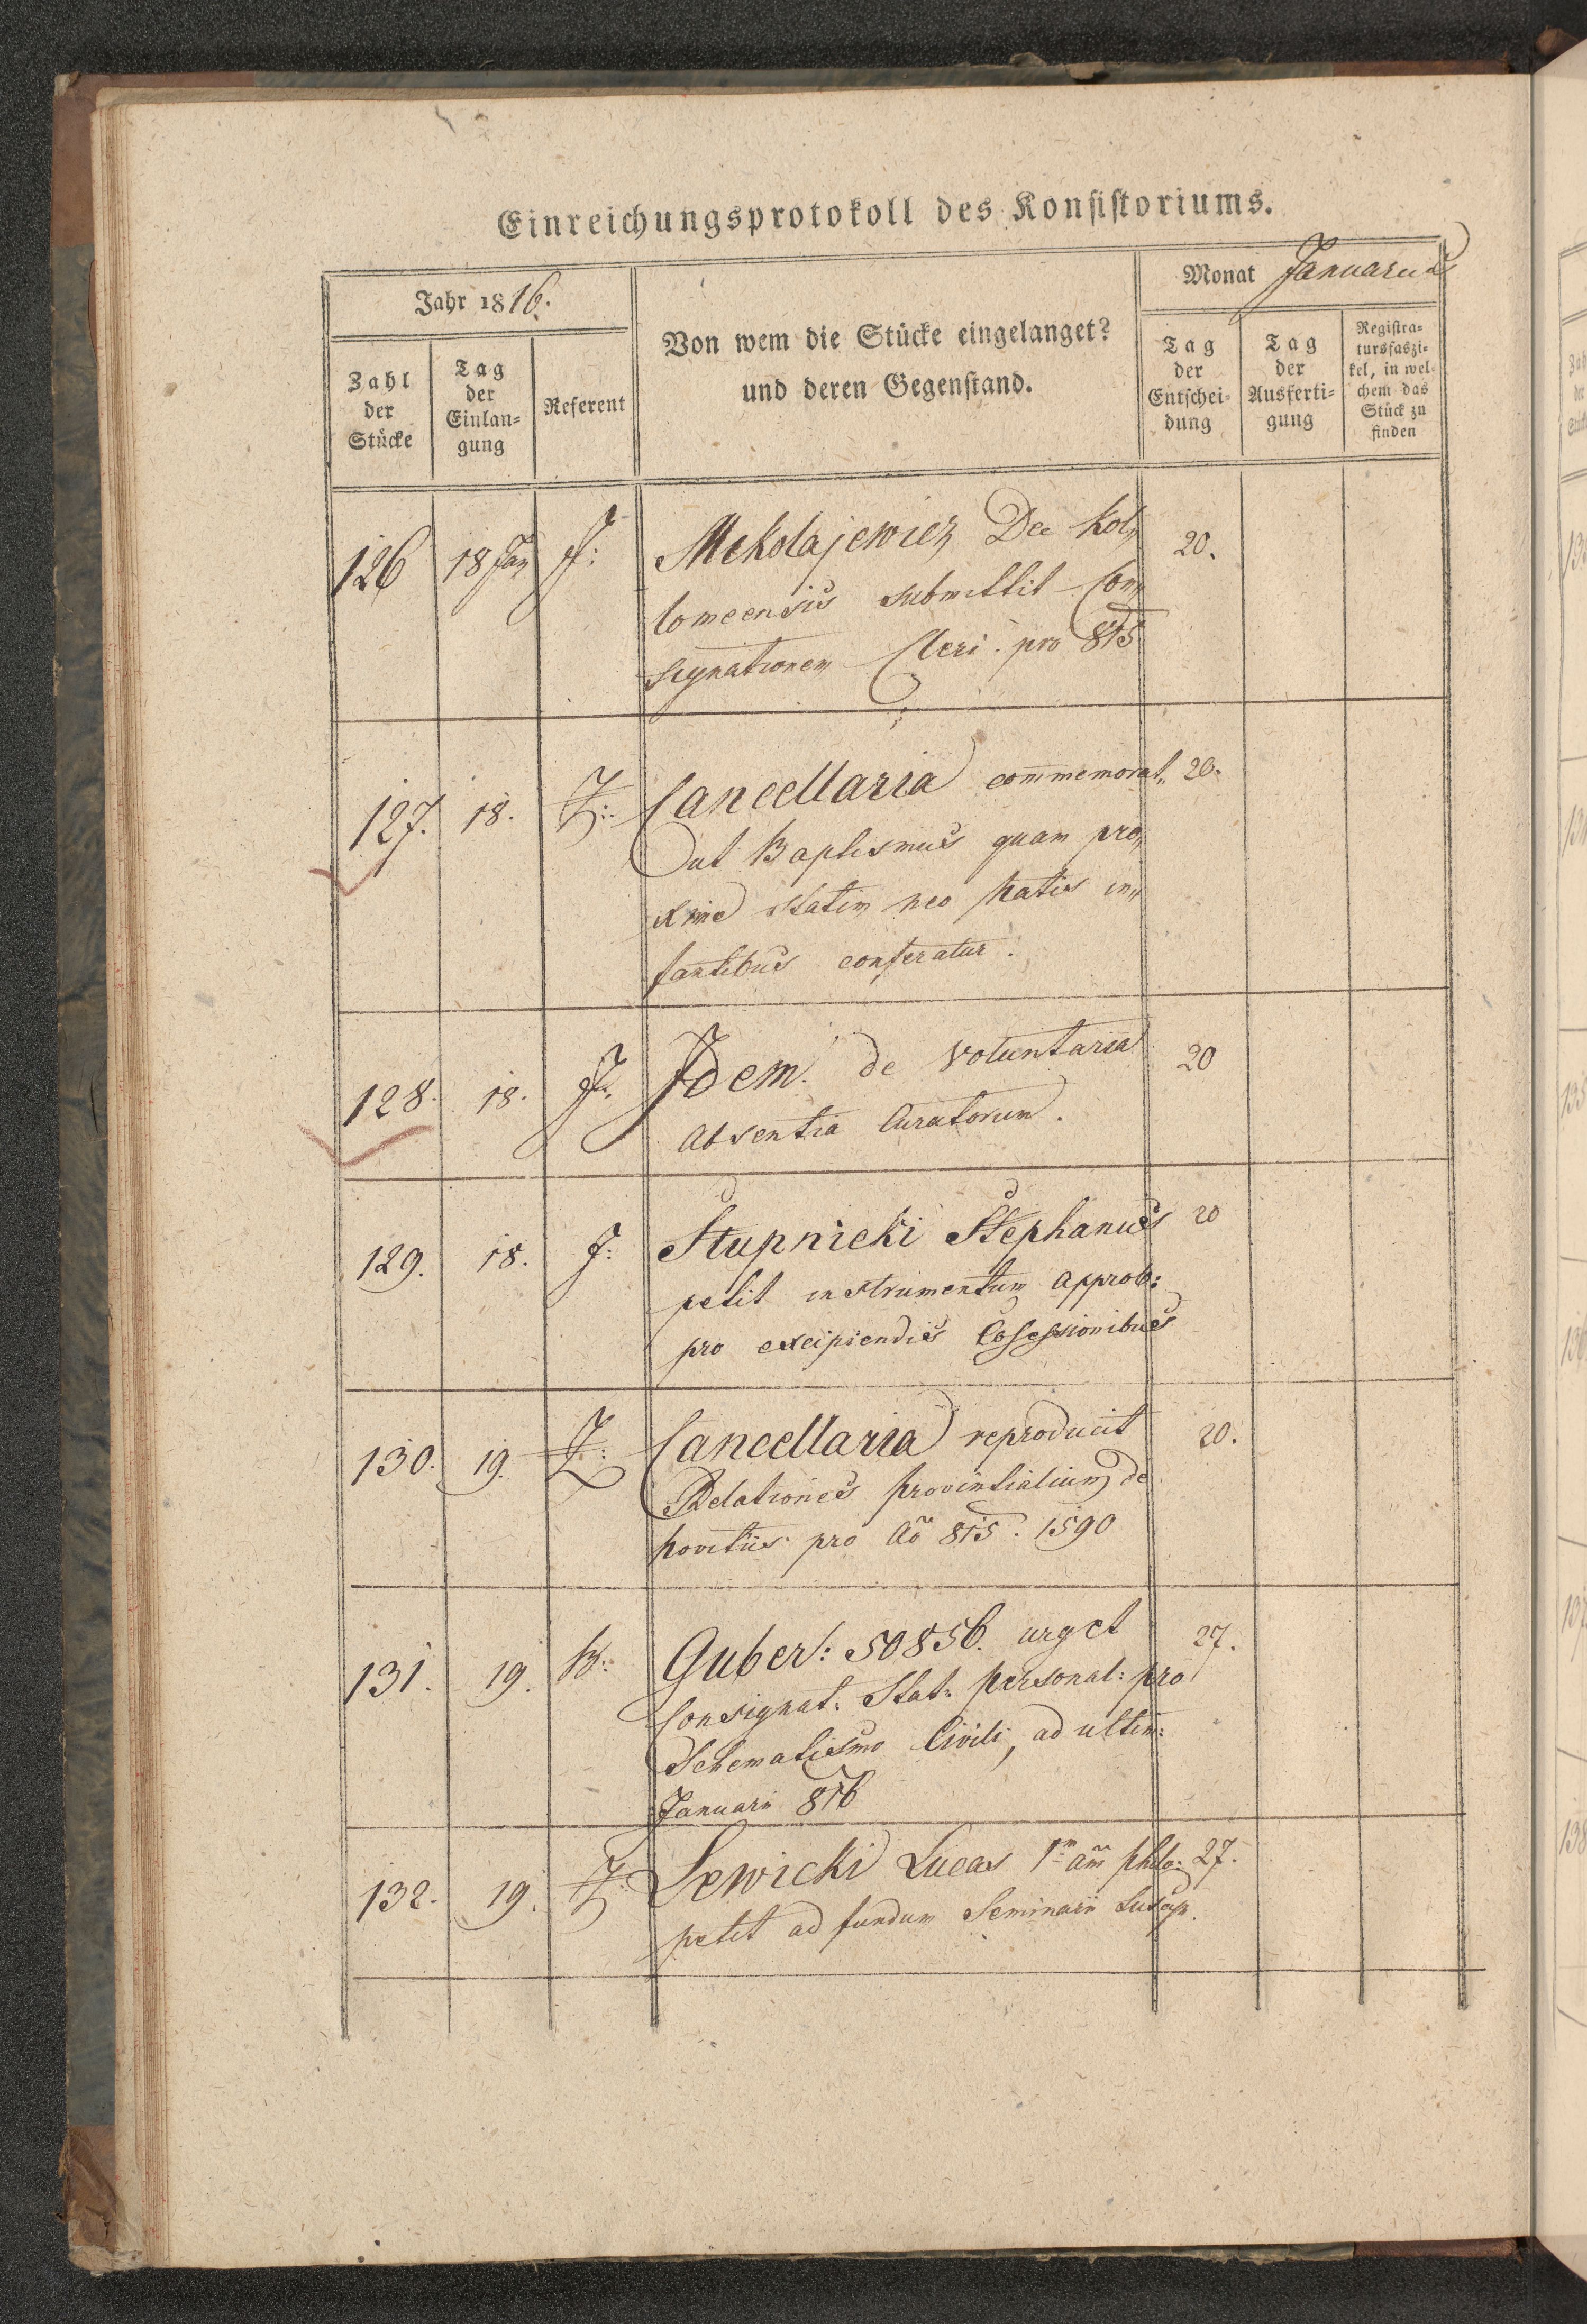 Einreichungsprotokoll des Konsistoriums.
Jahr 1816.
Von wem die Stücke eingelanget?
und deren Gegenstand.
Monat Januarius
Zahl
der
Stücke
Tag
der
Einlan-
gung
Referent
Tag
der
Entschei-
dung
Tag
der
Ausferti-
gung
Registra-
tursfaszi-
kel, in wel-
chem das
Stück zu
finden
126 18 Jan J: Mikolajewicz Dec Kol„ 20.
lomeensis submittit Con„
signationem Cleri pro 815
127. 18. Z: Cancellaria commemorat„ 20.
ut Baptismus quam pro„
xime statim neo natis in„
fantibus conferatur.
128. 18. J. Idem de voluntaria 20
absentia Curatorum.
129. 18. J: Stupnicki Stephanus 20
petit instrumentum approb:
pro excipiendis Cofessionibus
130. 19. Z: Cancellaria reproducit 20.
Relationes provintialium de
novitiis pro Aõ 815. 1590
131. 19. B: Guber: 50856. urget 27.
Consignat: Stat: personal: pro
Schematismo Civili, ad ultim:
Januarii 816
132. 19. Z: Lewicki Lucas 1m añi philo: 27.
petit ad fundum Seminarii